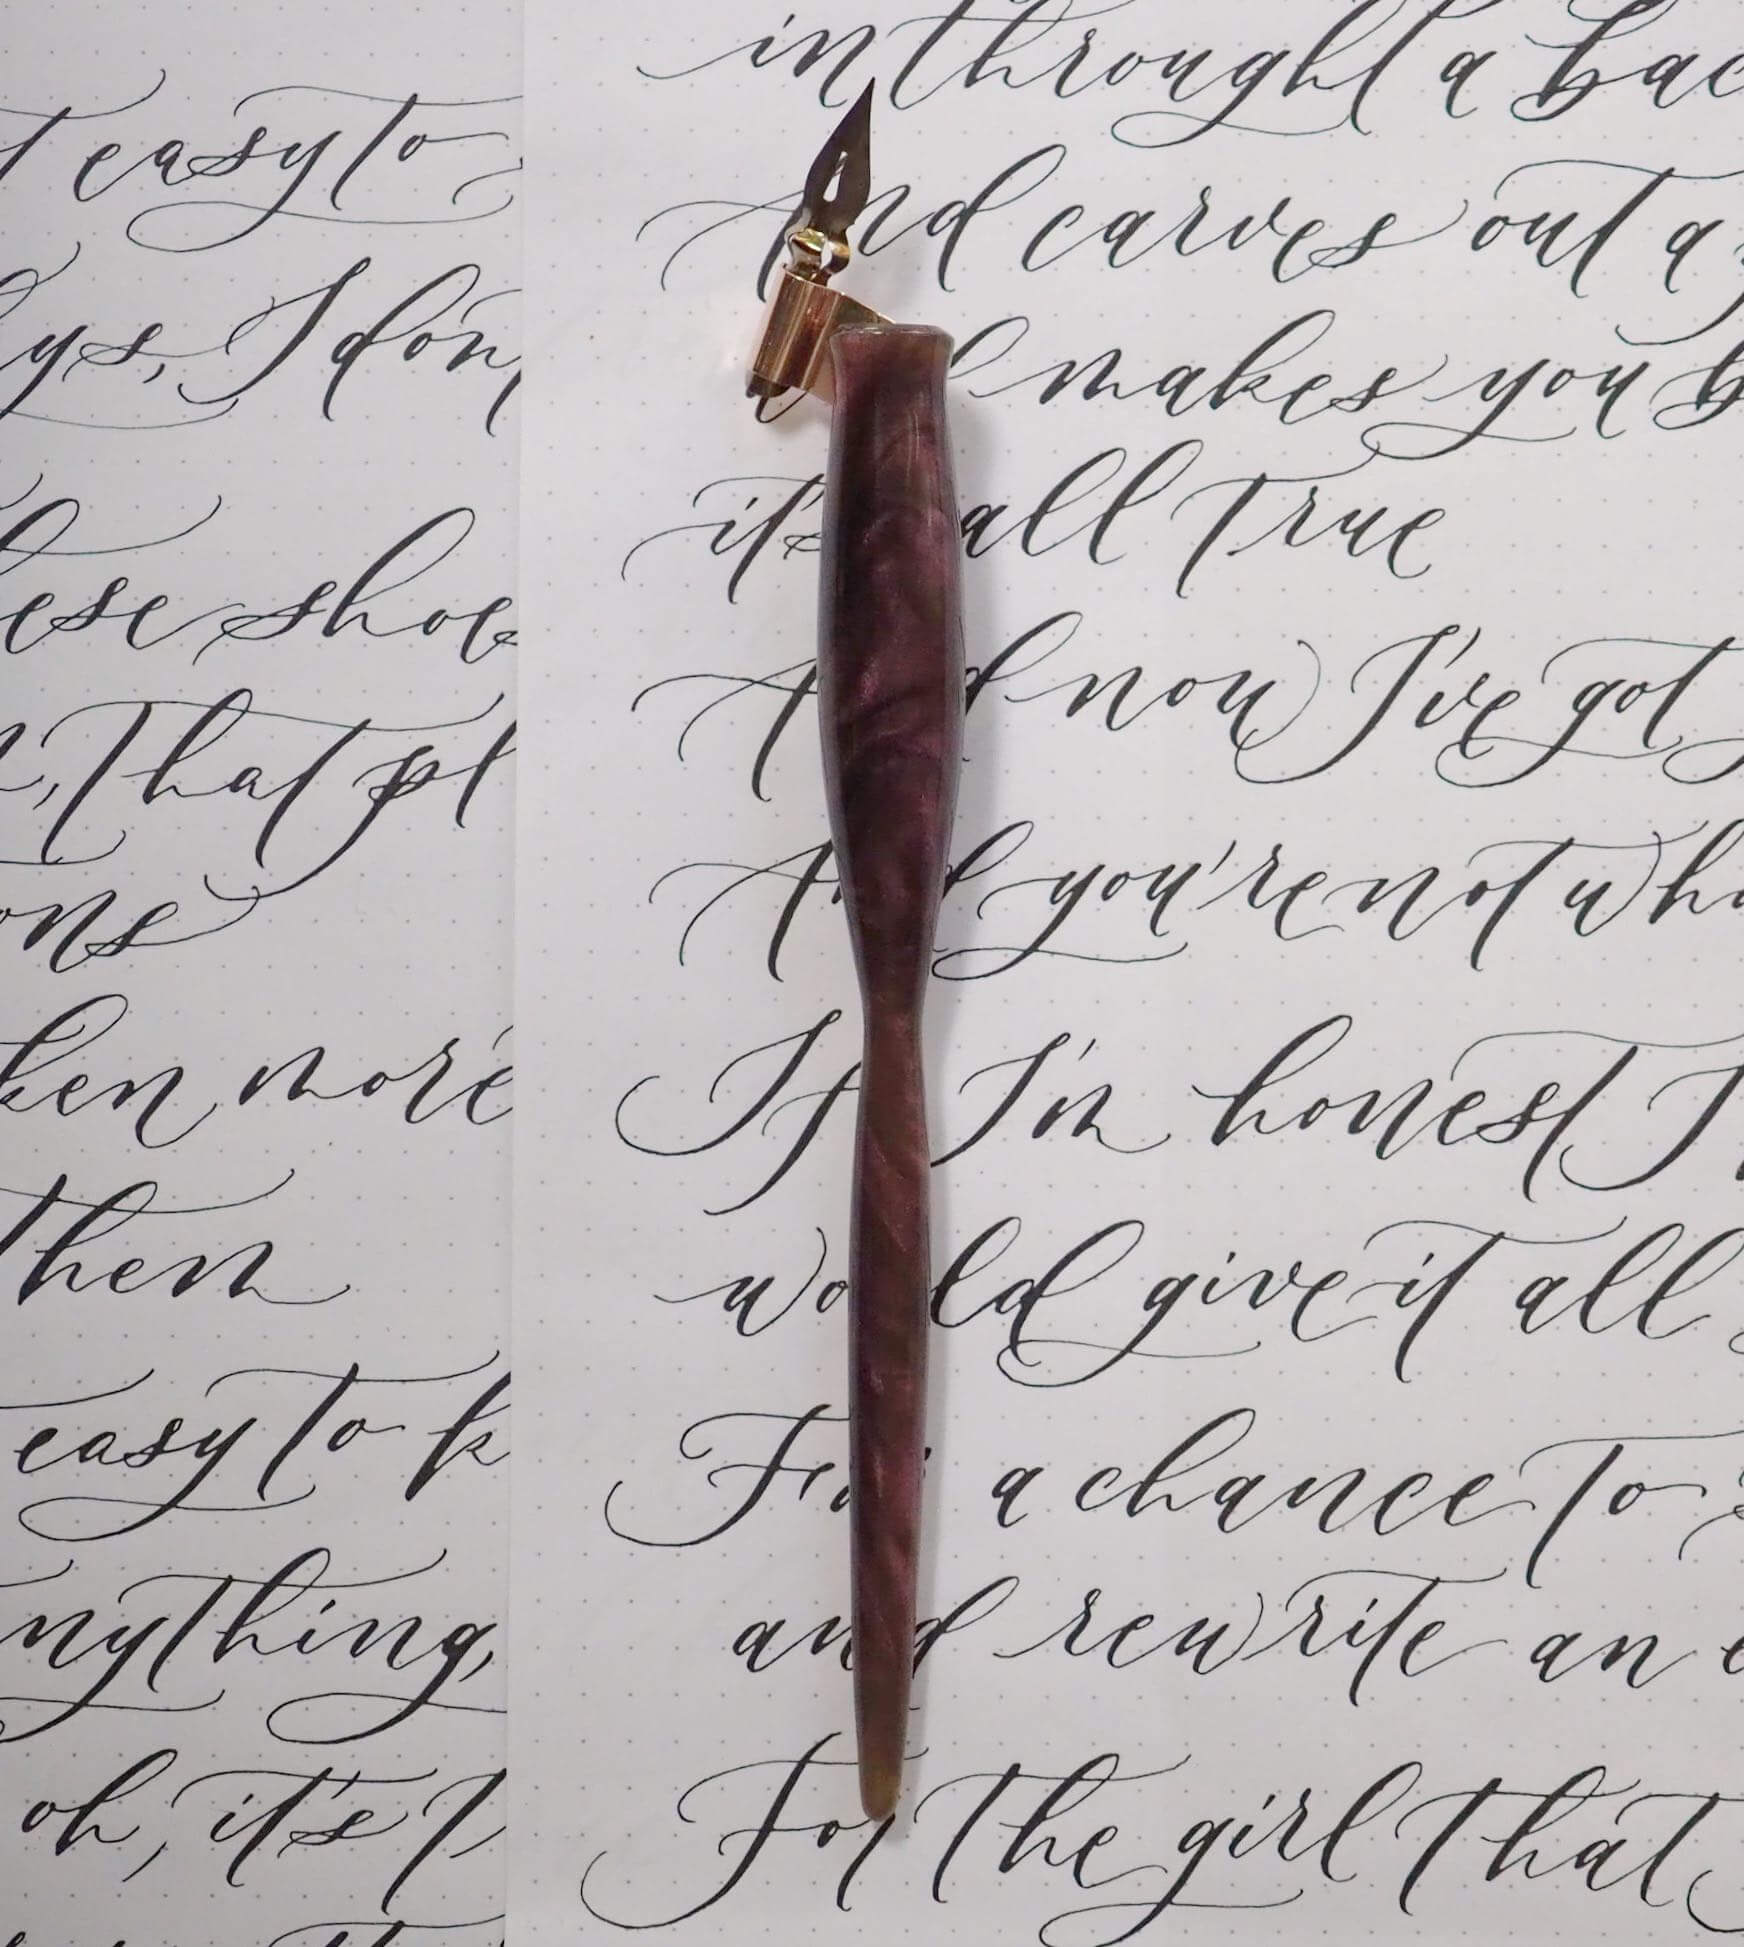 easy to
ys, I don
ese shoes
, that pl
ons
ken more
then
easy to k
nything,
oh, it's
in through a bac
And carves out a
makes you b
it's all true
And now I've got
And you're not wha
If I'm honest I
would give it all
For a chance to
and rewrite an e
For the girl that